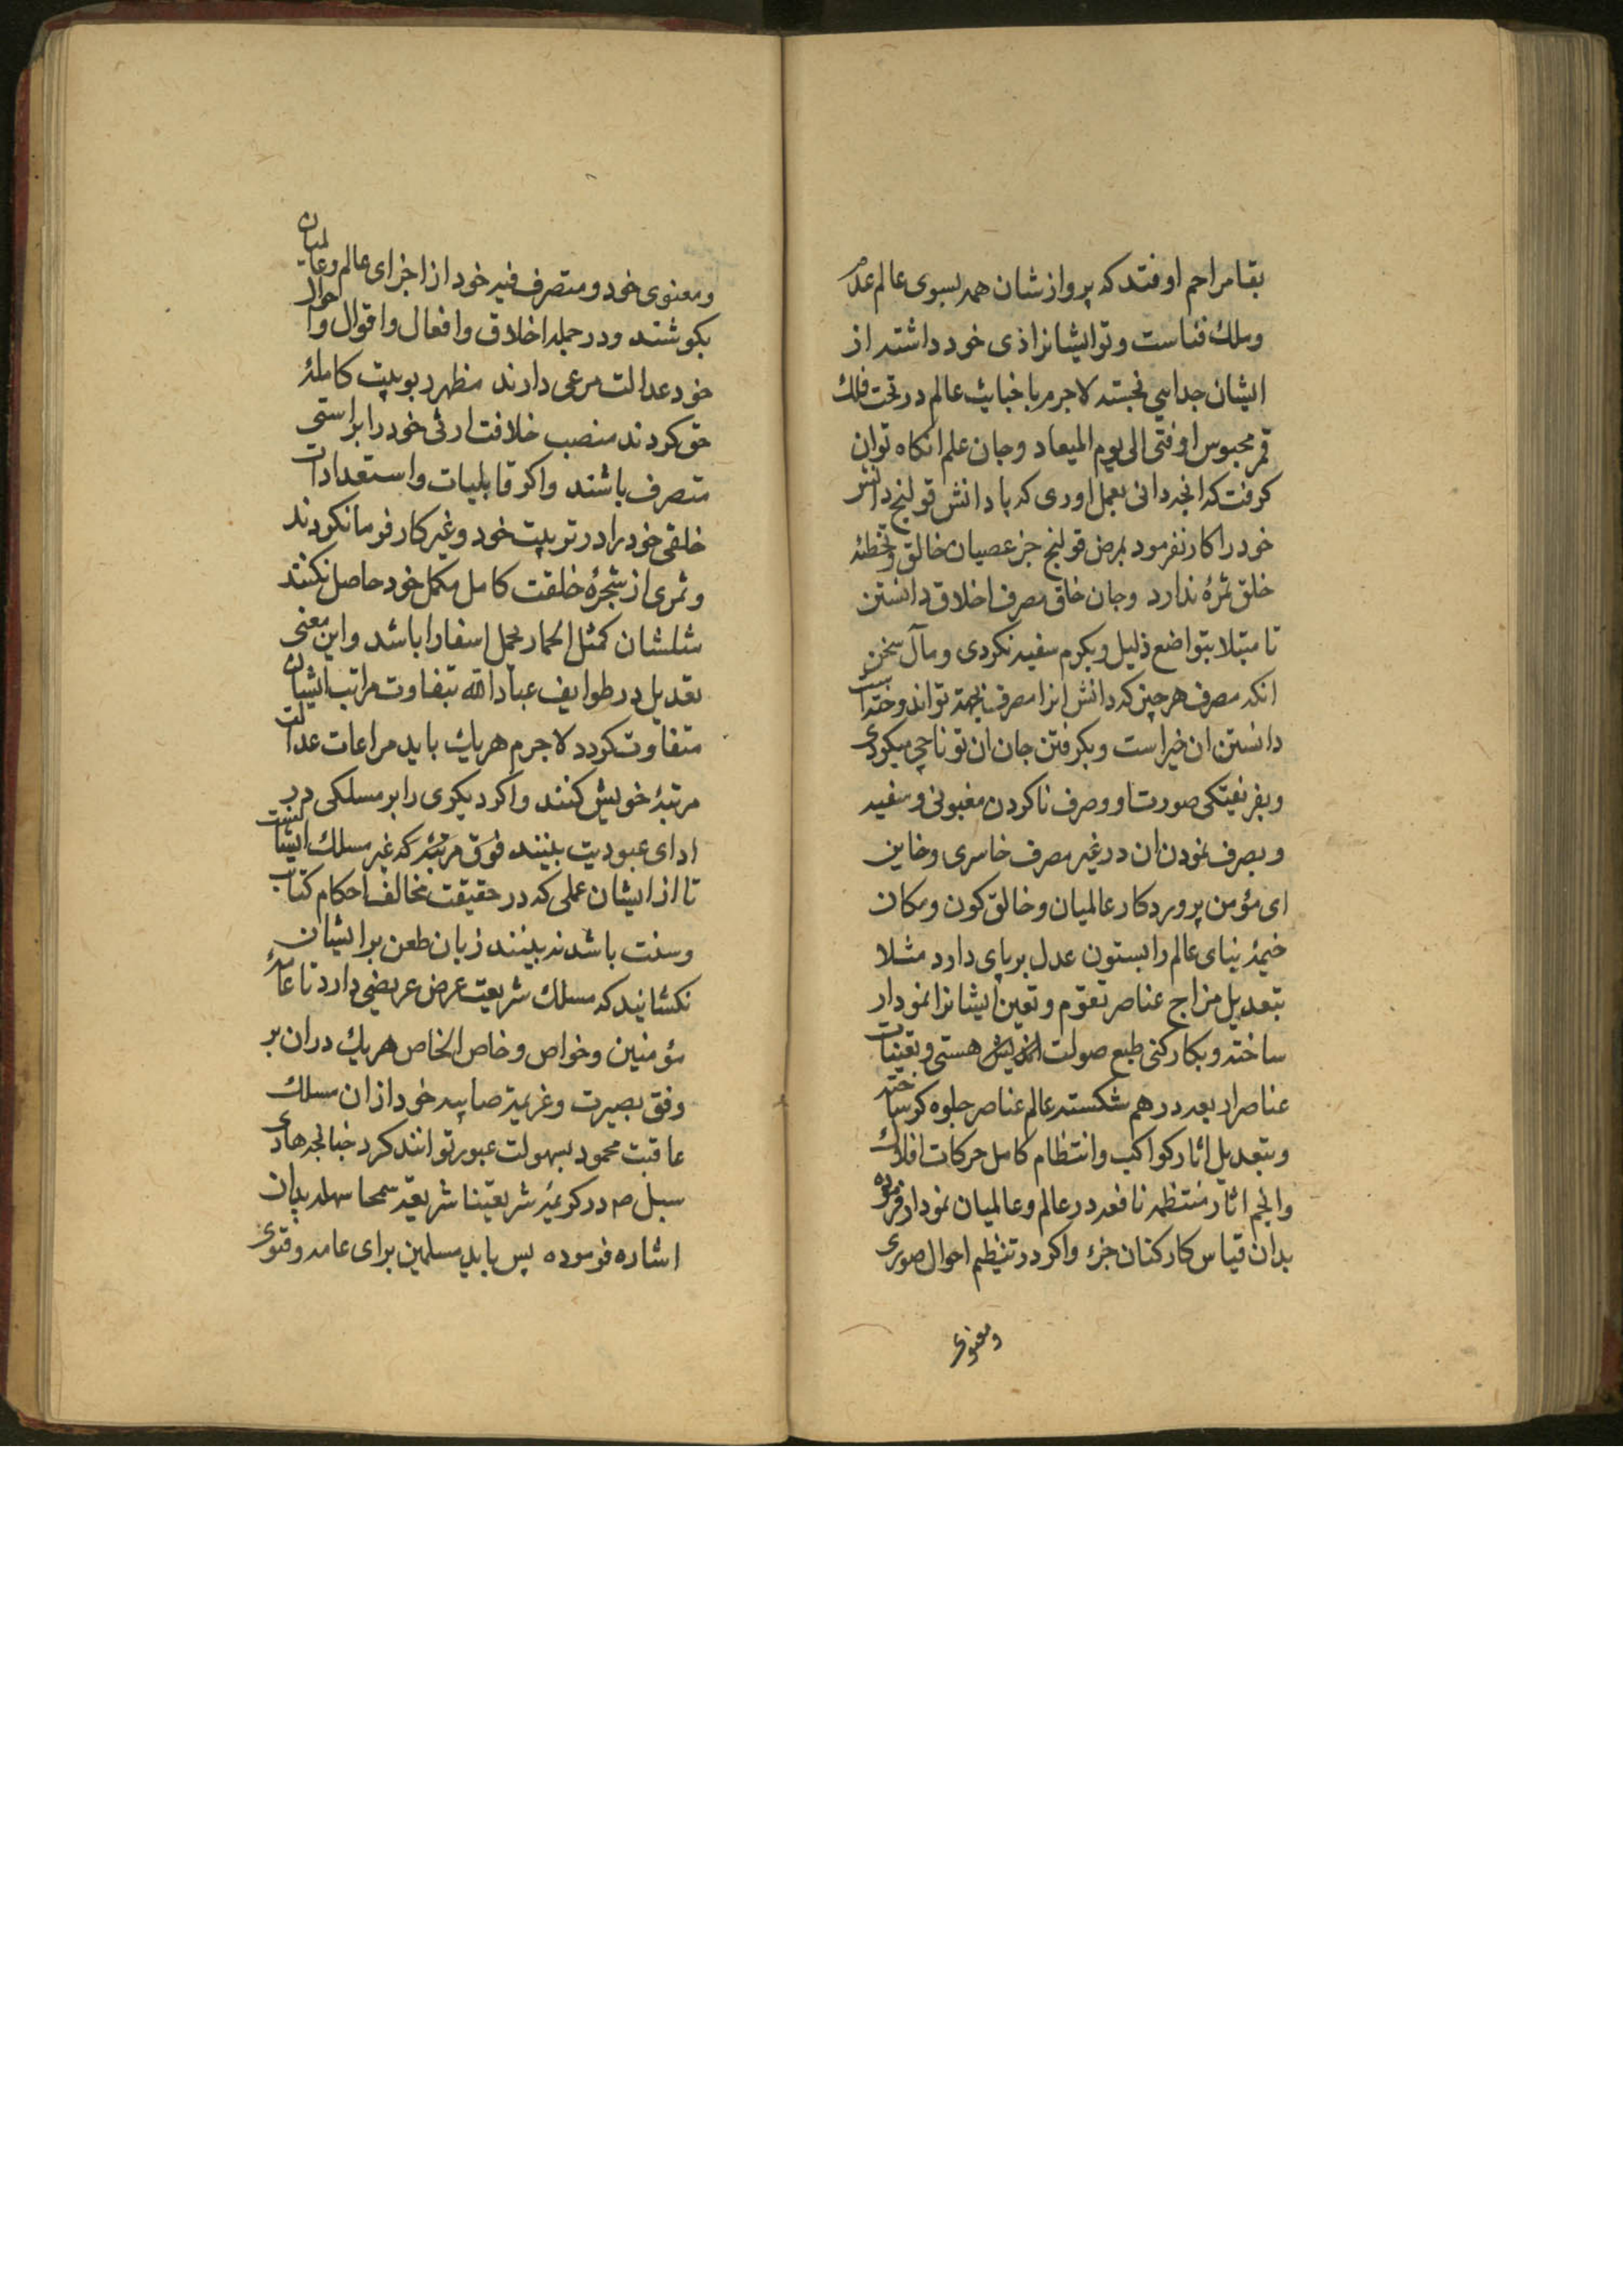 بقا مراحم اوفتد که پروازشان همه بسوی عالم عدم
وملك فناست و تو ایشانرا ذی خود داشته از
ایشان جدایی نجسته لاجرم با خبایث عالم در تحت فلك
قمر محبوس اوفتی الی یوم المیعاد وجان علم انکاه توان
کرفت که انچه دانی بعمل اوری که با دانش قولنج دانش
خود را کار نفرمود بمرض قولنج جز عصیان خالق وتخطئه
خلق ثمرهٔ ندارد وجان خلق مصرف اخلاق دانستن
تا مبتلا بتواضع ذلیل وبکرم سفیه نکردی ومآل سخن
انکه مصرف هر چیز که دانش انرا مصرف بجهة تواند وختست
دانستن ان خیر است وبکرفتن جان ان تو ناجی میکردی
وبفریفتکی صورت او وصرف ناکردن مغبونی وسفیه
وبصرف نمودن ان در غیر مصرف خاسری وخاین
ای مؤمن پروردکار عالمیان وخالق کون ومکان
خیمهٔ بنای عالم را بستون عدل برپای دارد مثلا
بتعدیل مزاج عناصر تقوم وتعین ایشانرا نمودار
ساخته وبکارکنی طبع صولت هستی وتعینات
عناصر اربعه در هم شکسته عالم عناصر جلوه کر ساخته
وبتعدیل اثار کواکب وانتظام کامل حرکات افلاك
وانجم اثار منتظمه نافعه در عالم وعالمیان نمودار فرموده
بدان قیاس کارکنان جزء واکر در تنظیم احوال صوری
ومعنوی
ومعنوی خود ومتصرف فیه خود از اجزای عالم وعالمیان
بکوشند ودر جمله اخلاق وافعال واقوال واحوال
خود عدالت مرعی دارند مظهر ربوبیت کاملهٔ
حق کردند منصب خلافت ارثی خود را براستی
متصرف باشند واکر قابلیات واستعدادات
خلقی خود را در تربیت خود وغیر کار فرما نکردند
وثمری از شجرهٔ خلقت کامل مکمل خود حاصل نکنند
مثلشان کمثل الحمار یحمل اسفارا باشد واین معنی
تعدیل در طوایف عباد الله بتفاوت مراتب ایشان
متفاوت کردد لاجرم هریك باید مراعات عدالت
مرتبهٔ خویش کنند واکر دیکری را بر مسلکی در
ادای عبودیت بینند فوق مرتبهٔ که غیر مسلك ایشانست
تا از ایشان عملی که در حقیقت مخالف احکام کتاب
وسنت باشد نه بینند زبان طعن بر ایشان
نکشانید که مسلك شریعت عرض عریضی دارد تا عامهٔ
مؤمنین وخواص وخاص الخاص هریك دران بر
وفق بصیرت وعزیمة صایبه خود ازان مسلك
عاقبت محمود بسهولت عبور توانند کرد چنانچه هادی
سبل ص در کریمهٔ شریعتنا شریعة سمحا سهله بدان
اشاره فرموده پس باید مسلمین برای عامه وفتوی